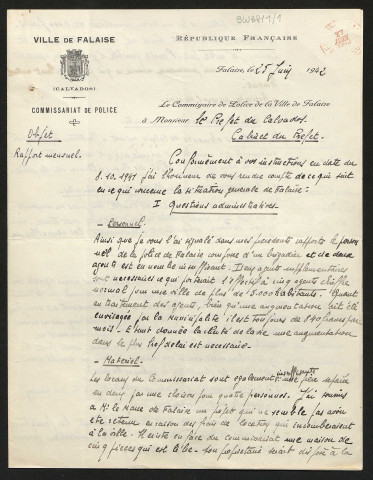 9W8811/1
VILLE DE FALAISE
(CALVADOS)
COMMISSARIAT DE POLICE
RÉPUBLIQUE FRANÇAISE
Falaise, le 25 Juin 1942
Le Commissaire de Police de la Ville de Falaise
à Monsieur le Préfet du Calvados.
Cabinet du Préfet.
Objet
Rapport mensuel.
Conformément à vos instructions en date du
8.10.1941 j'ai l'honneur de vous rendre compte de ce qui suit
en ce qui concerne la situation générale de Falaise:
I Questions administratives.
- Personnel.
Ainsi que je vous l'ai signalé dans mes précédents rapports le person-
nel de la police de Falaise composé d'un brigadier et de deux
agents est en nombre insuffisant. Deux agents supplémentaires
sont nécessaires ce qui porterait l'effectif à cinq agents chiffre
normal pour une ville de plus de habitants. Quant
au traitement des agents, bien qu'une augmentation ait été
envisagée par la municipalité il est toujours de 1400 francs par
mois. Etant donnée la cherté de la vie une augmentation
dans le plus bref délai est nécessaire.
- Matériel.
Les locaux du Commissariat sont également insuffisants une pièce séparée
en deux par une cloison pour quatre personnes. J'ai soumis
à Mr le Maire de Falaise un projet qui ne semble pas avoir
été retenu en raison des frais de location qui incomberaient
à la ville. Il existe en face du commissariat une maison de
cinq pièces qui est libre. Son propriétaire serait disposé à la